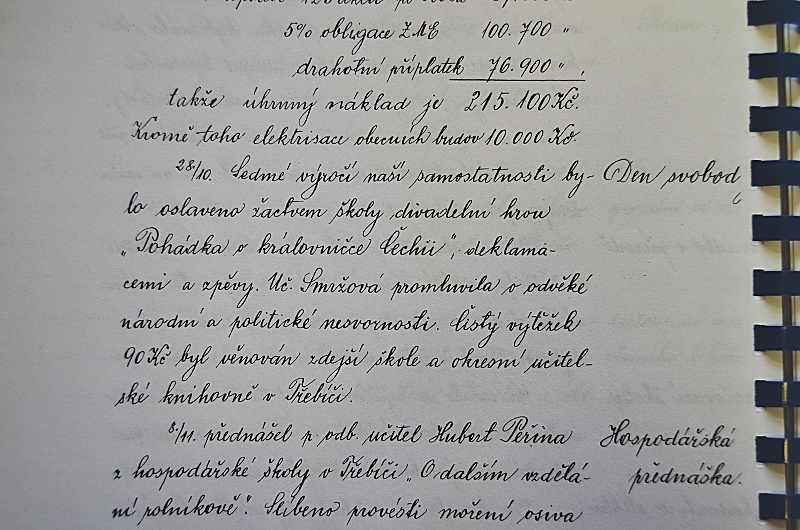 5% obligace ZME 100.700 "
drahotní příplatek 76.900 " .
takže úhrnný náklad je 215.100 Kč.
Kromě toho elektrisace obecních budov 10.000 Kč.
28/10. Sedmé výročí naší samostatnosti by- Den svobody
lo oslaveno žactvem školy divadelní hrou
„Pohádka o královničce Čechii", deklama-
cemi a zpěvy. Uč. Smržová promluvila o odvěké
národní a politické nesvornosti. Čistý výtěžek
90 Kč byl věnován zdejší škole a okresní učitel-
ské knihovně v Třebíči.
8/11. přednášel p. odb. učitel Hubert Peřina Hospodářská
z hospodářské školy v Třebíči „O dalším vzdělá- přednáška.
ní rolníkově". Slíbeno provésti moření osiva